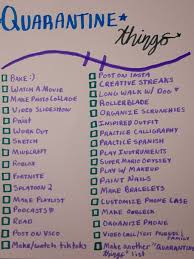 QUARANTINE
things
BAKE :)
WATCH A MOVIE
MAKE PHOTO COLLAGE
VIDEO SLIDESHOW
PAINT
WORK OUT
SKETCH
MINECRAFT
ROBLOX
FORTNITE
SPLATOON 2
MAKE PLAYLIST
PODCASTS
READ
POST ON VSCO
Make/watch tiktoks
POST ON INSTA
CREATIVE STREAKS
LONG WALK W/ DOG
ROLLERBLADE
ORGANIZE SCRUNCHIES
INSPIRED OUTFIT
PRACTICE CALLIGRAPHY
PRACTICE SPANISH
PLAY INSTRUMENTS
SUPER MARIO ODYSSEY
PLAY W/ MAKEUP
PAINT NAILS
MAKE BRACELETS
CUSTOMIZE PHONE CASE
MAKE
ORGANISE PHONE
VIDEO CALL/TEXT FRIENDS
FAMILY
Make another "Quarantine
things" list